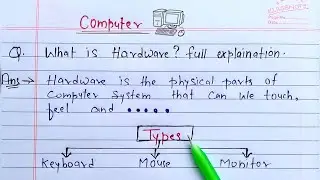 Computer
Q. What is Hardware? full explaination.
Ans → Hardware is the physical parts of
Computer System that can we touch,
feel and .....
Types
Keyboard Mouse Monitor